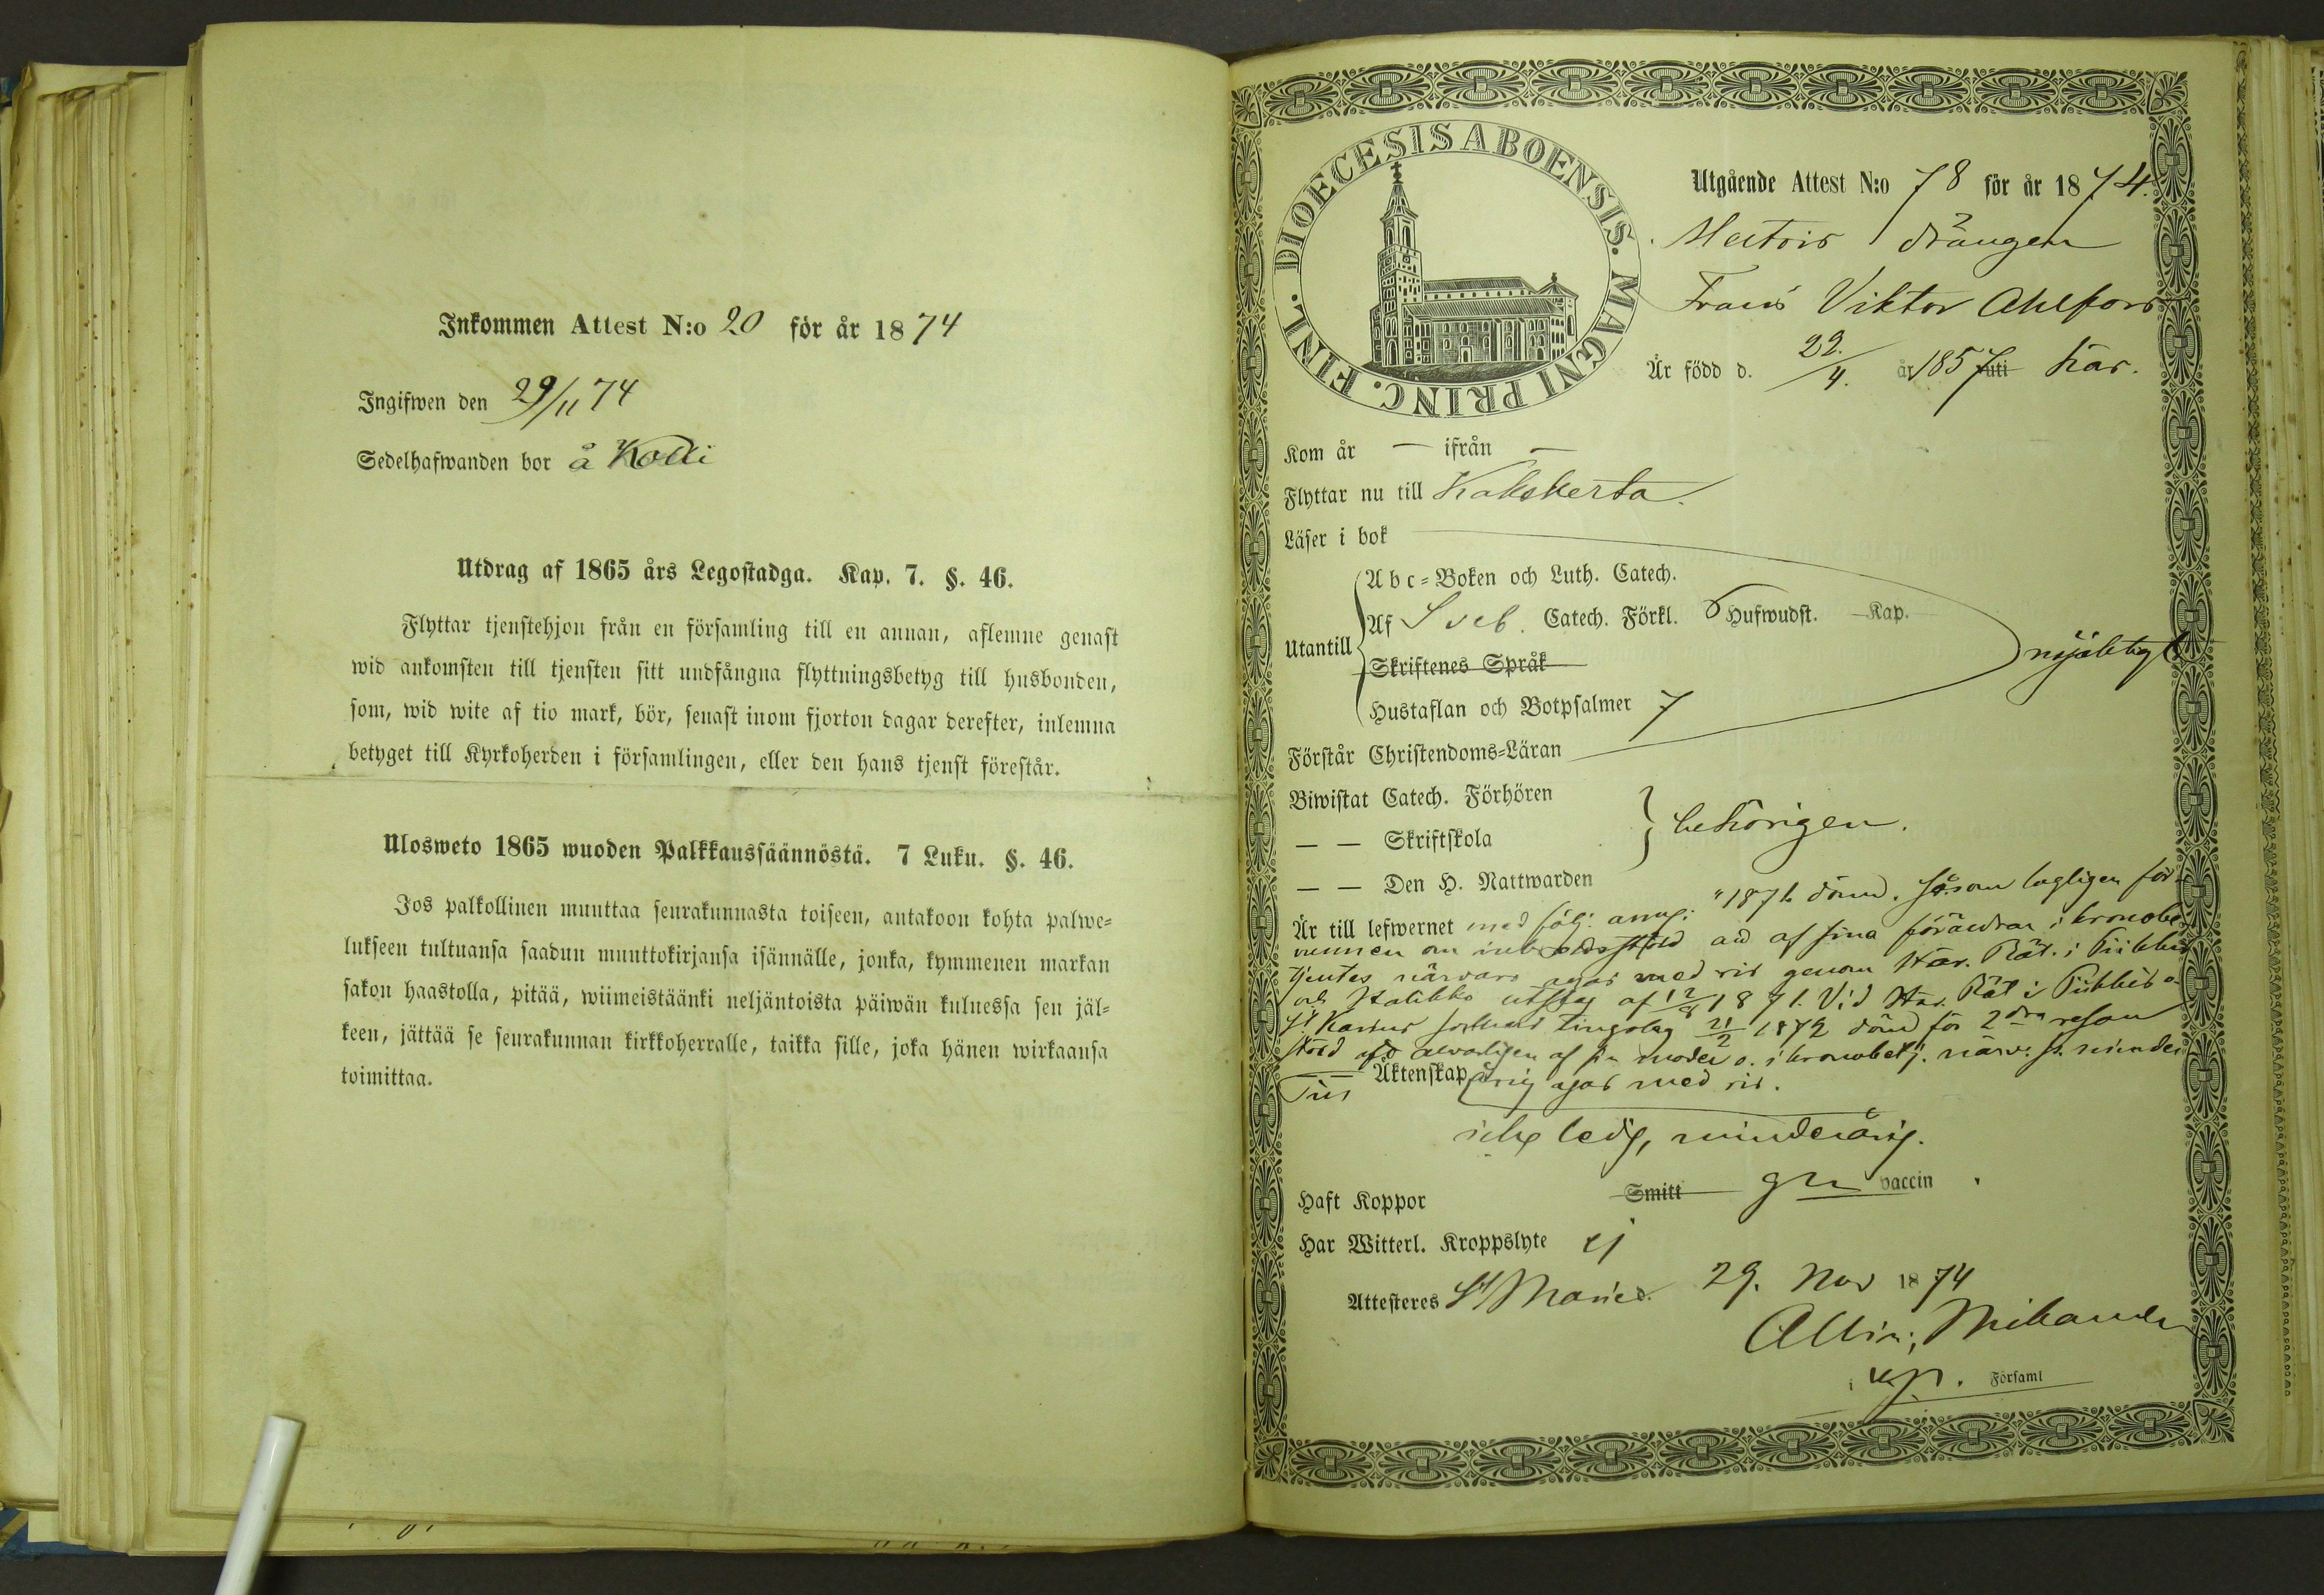 Inkommen Attest N:o 20 för år 1874
Ingifwen den 29/11 74
Sedelhafwanden bor å Kolli
Utdrag af 1865 års Legostadga. Kap. 7. §. 46.
Flyttar tjenstehjon från en församling till en annan, aflemne genast
wid ankomsten till tjensten sitt undfångna flyttningsbetyg till husbonden,
som, wid wite af tio mark, bör, senast inom fjorton dagar derefter, inlemna
betyget till Kyrkoherden i församlingen, eller den hans tjenst förestår.
Ulosweto 1865 wuoden Palkkaussäännöstä. 7 Luku. §. 46.
Jos palkollinen muuttaa seurakunnasta toiseen, antakoon kohta palwe=
lukseen tultuansa saadun muuttokirjansa isännälle, jonka, kymmenen markan
sakon haastolla, pitää, wiimeistäänki neljäntoista päiwän kuluessa sen jäl=
keen, jättää se seurakunnan kirkkoherralle, taikka sille, joka hänen wirkaansa
toimittaa.
DIOECESIS ABOENSIS. MAGNI PRINC. FINL.
Utgående Attest N:o 78 för år 1874.
drängen
Frans Viktor Ahlfors
Är född d. 22./4. år 1857 uti här.
Kom år — ifrån —
Flyttar nu till Kakskerta.
Läser i bok
Abc=Boken och Luth. Catech.
Utantill Af Sveb. Catech. Förkl. 5 Hufwudst. Kap.
Skriftenes Språk
Hustaflan och Botpsalmer 7
nöjaktigt
Förstår Christendoms=Läran
Biwistat Catech. Förhören
— — Skriftskola behörigen.
— — Den H. Nattwarden
Är till lefwernet med följ. anm: "1871 dömd. såsom lagligen för-
vunnen om stöld af sina föräldrar i kronobe-
tjentes närvaro agas med ris genom Här. Rät. i Piikkis
och Halikko utslag af 12/8 1871. Vid Här. Rät i Piikkis o.
S:t Karins tingslag 21/2 1872 dömd för 2dra resan
stöld af sin moder o. i kronobetj. närv. ss. minder
Äktenskap årig agas med ris.
ledig, minderårig.
Haft Koppor Smitt gm vaccin
Har Witterl. Kroppslyte ej
Attesteres S:t Marie d. 29. Nov 1874
i Församl